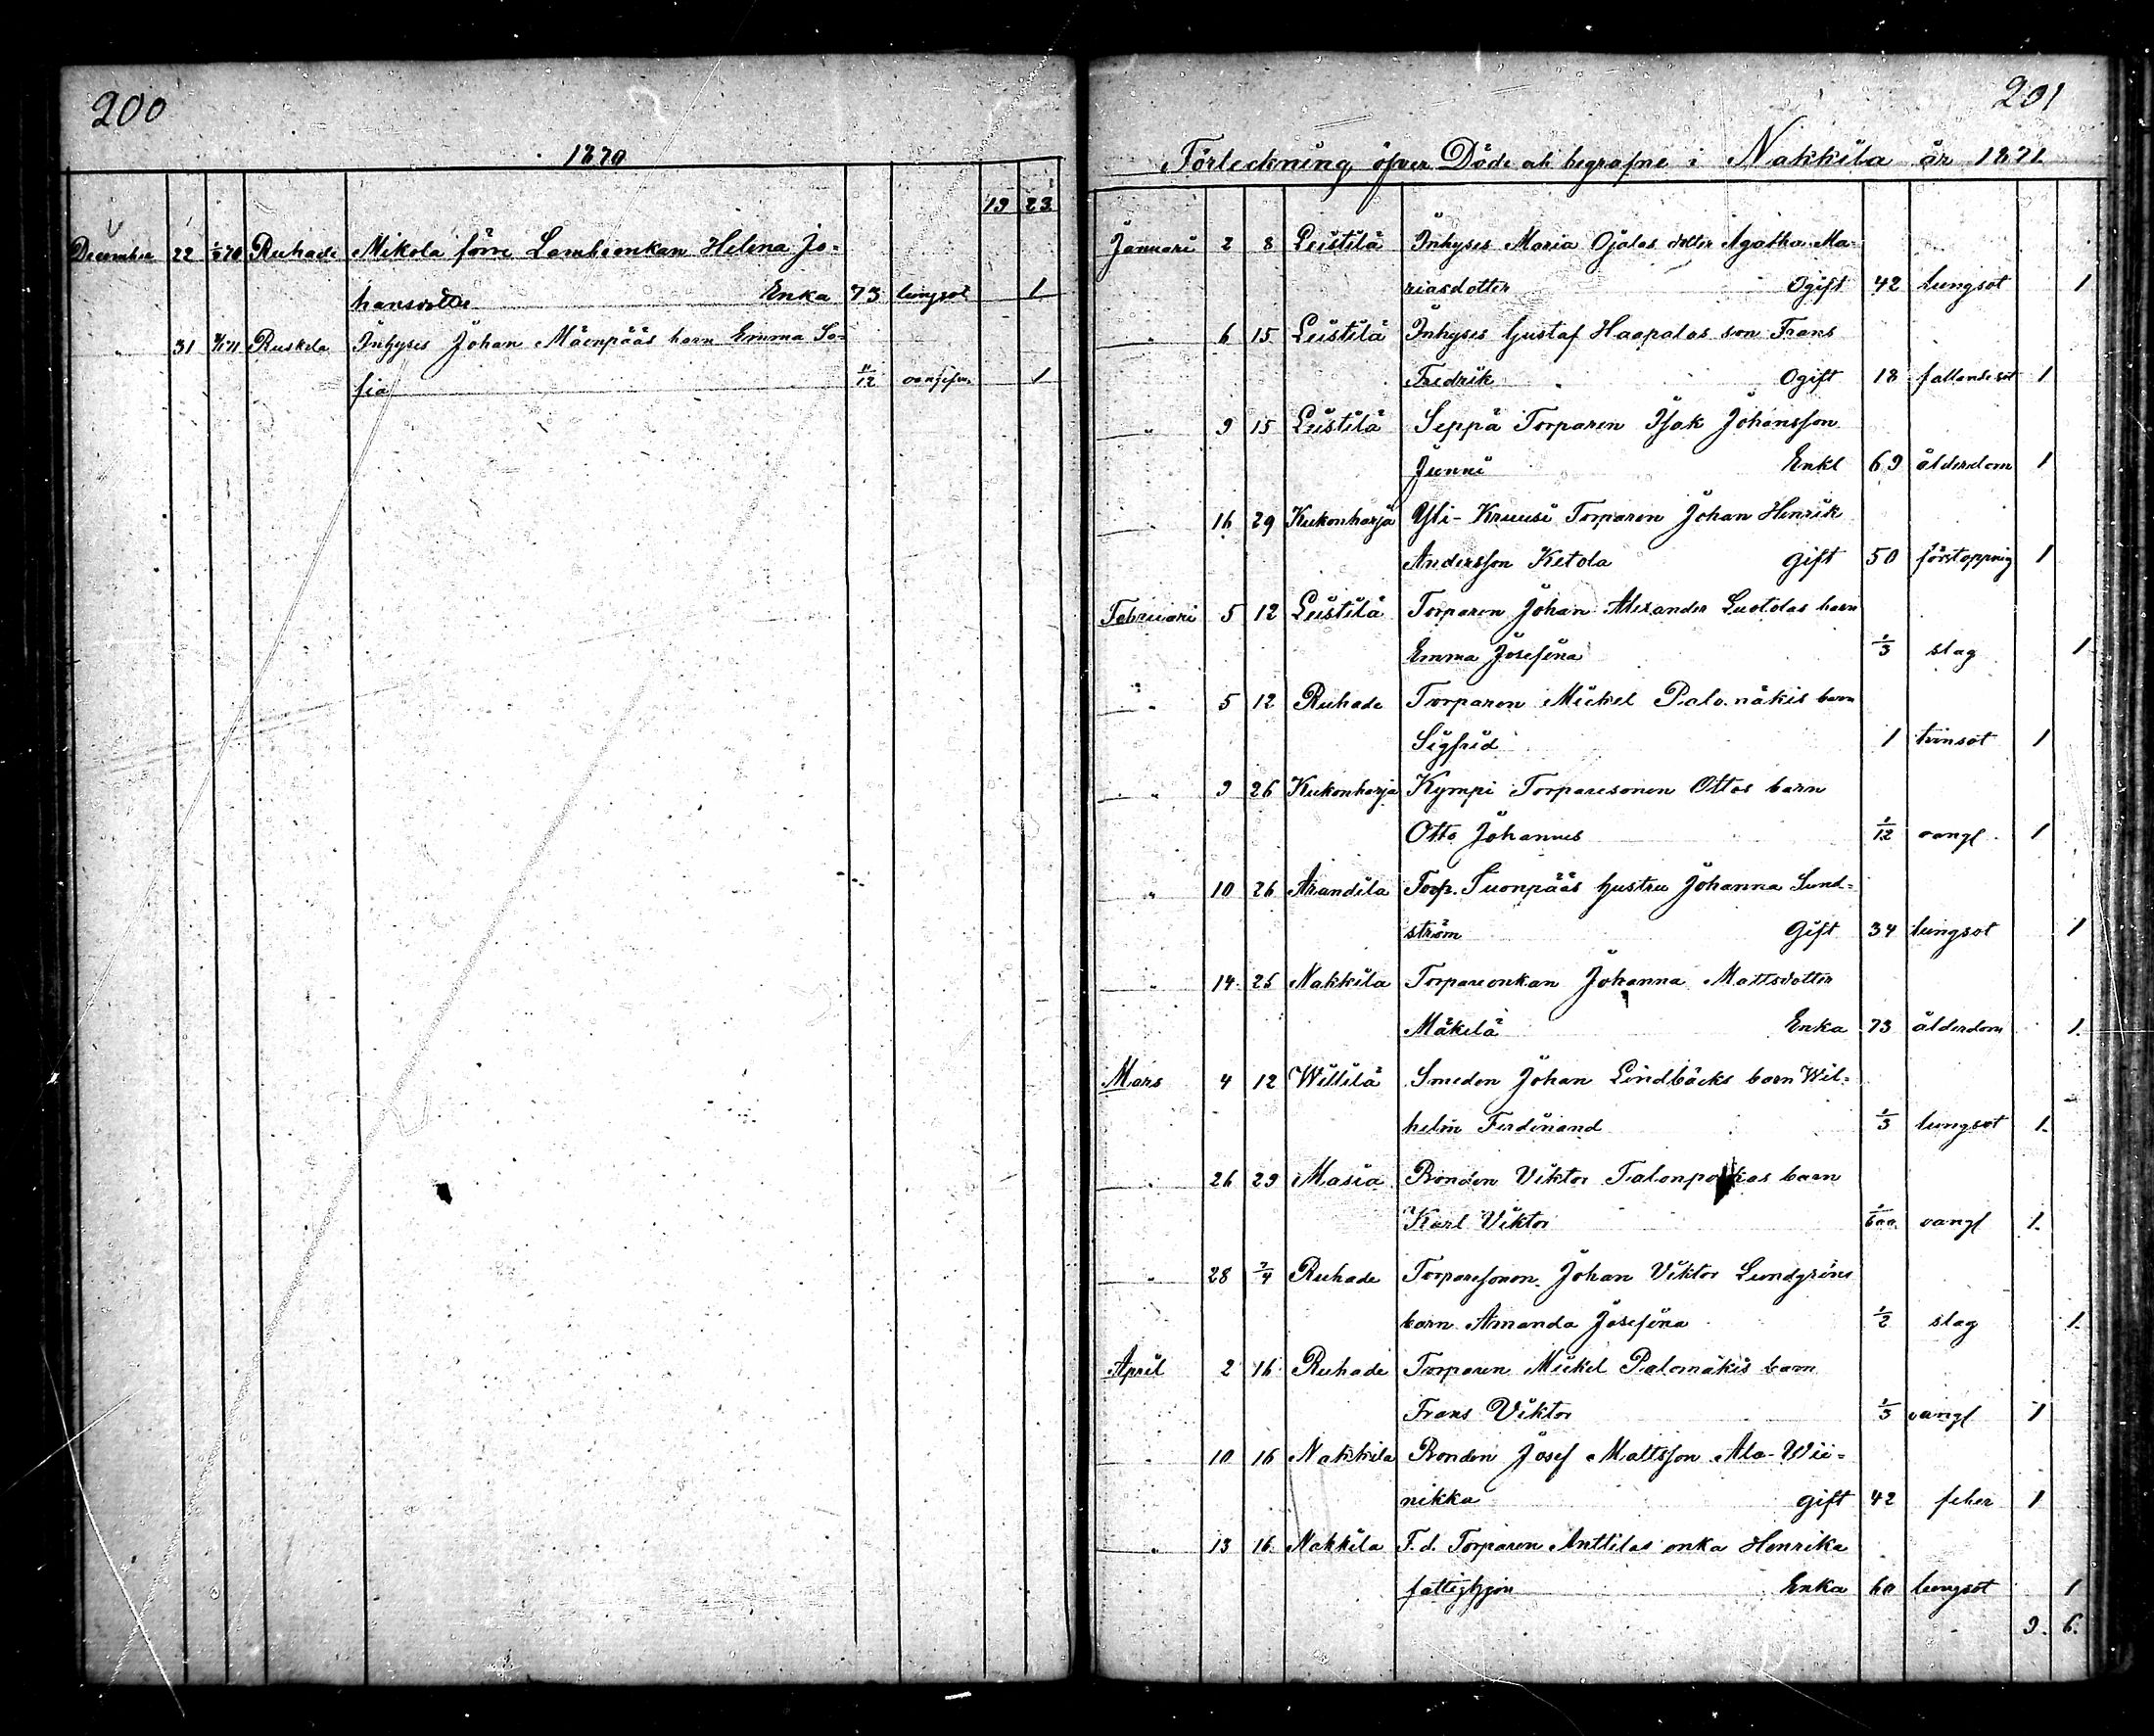 200
1870
19 23
December 22 1/1 71 Ruhade Mikola förre Lambienkan Helena Jo-
hansdotter Enka 73 lungsot 1
" 31 Ruskela Inhyses Johan Mäenpääs barn Emma So-
fia 11/12 1
201
Förteckning öfver Döde och begrafne i Nakkila år 1871
Januari 2 8 Leistilä Inhyses Maria Ojalas dotter Agatha Ma-
riasdotter Ogift 42 lungsot 1
" 6 15 Leistilä Inhyses Gustaf Haapalas son Frans
Fredrik Ogift 18 fallandesot 1
" 9 15 Leistilä Seppä Torparen Isak Johansson
Junni Enkl 69 ålderdom 1
" 16 29 Kukonharja Yli-Kruusi Torparen Johan Henrik
Andersson Ketola gift 50 förstoppnig 1
Februari 5 12 Leistilä Torparen Johan Alexander Luotolas barn
Emma Josefina 1/3 slag 1
" 5 12 Ruhade Torparen Mickel Palomäkis barn
Sigfrid 1 tvinsot 1
" 9 26 Kukonharja Kympi Torparesonen Ottos barn
Otto Johannes 1/12 oangf. 1
" 10 26 Arandila Torp. Tuonpääs hustru Johanna Sund-
ström Gift 34 lungsot 1
" 14 25 Nakkila Torpareenkan Johanna Mattsdotter
Mäkelä Enka 73 ålderdom 1
Mars 4 12 Willilä Smeden Johan Lindbäcks barn Wil-
helm Ferdinand 1/3 lungsot 1
" 26 29 Masia Bonden Viktor Talonpoikas barn
Karl Viktor oangf 1
" 28 2/4 Ruhade Torparesonen Johan Viktor Lundgréns
barn Amanda Josefina 1/2 slag 1
April 2 16 Ruhade Torparen Mickel Palomäkis barn
Frans Viktor 1/3 oangf 1
" 10 16 Nakkila Bonden Josef Mattsson Ala-Wii-
nikka gift 42 feber 1
" 13 16 Nakkila F.d. Torparen Anttilas enka Henrika
fattighjon Enka 60 lungsot 1
9. 6.